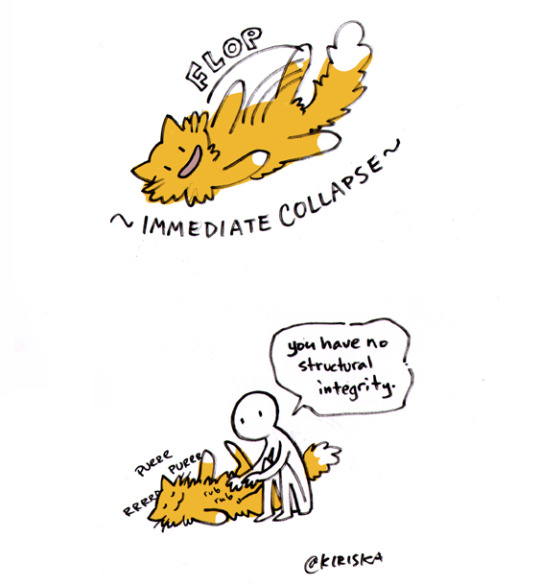 FLOP
~ IMMEDIATE COLLAPSE ~
you have no
structural
integrity.
PURRR
PURRR
RRRRR
rub
rub
@KIRISKA